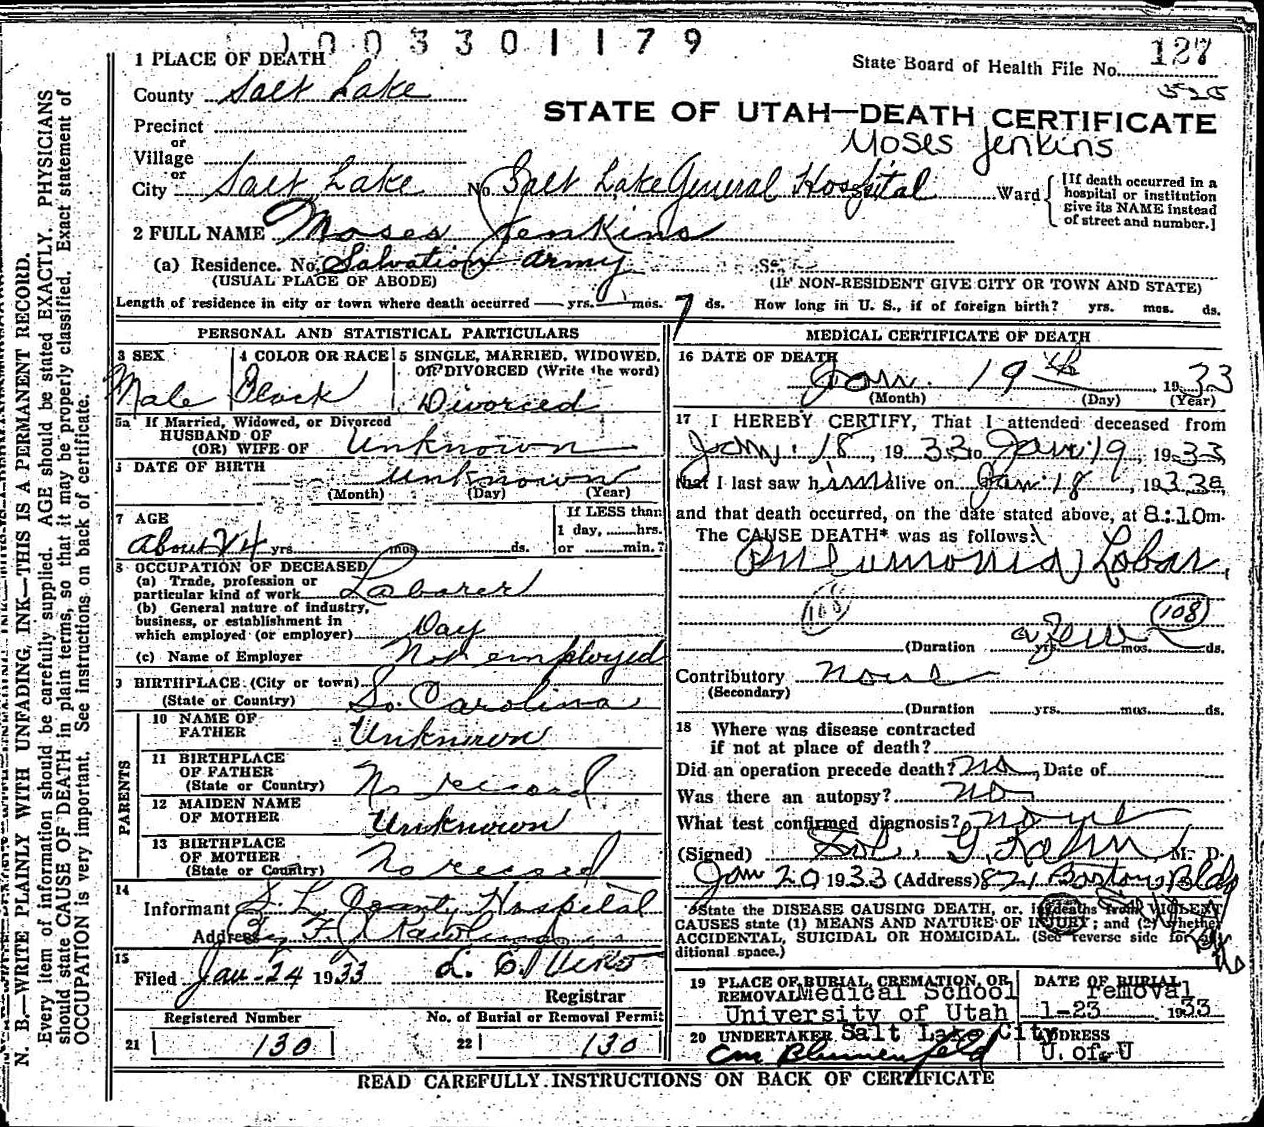 1003301179
1 PLACE OF DEATH
State Board of Health File No. 127
525
County Salt Lake
STATE OF UTAH—DEATH CERTIFICATE
Precinct
Moses Jenkins
or
Village
or
City Salt Lake No. Salt Lake General Hospital Ward
[If death occurred in a
hospital or institution
give its NAME instead
of street and number.]
2 FULL NAME Moses Jenkins
(a) Residence. No. Salvation Army St.
(USUAL PLACE OF ABODE) (IF NON-RESIDENT GIVE CITY OR TOWN AND STATE)
Length of residence in city or town where death occurred — yrs. mos. 7 ds. How long in U. S., if of foreign birth? yrs. mos. ds.
PERSONAL AND STATISTICAL PARTICULARS
3 SEX 4 COLOR OR RACE 5 SINGLE, MARRIED, WIDOWED,
OR DIVORCED (Write the word)
Male Black Divorced
5a If Married, Widowed, or Divorced
HUSBAND OF
(OR) WIFE OF Unknown
DATE OF BIRTH Unknown
(Month) (Day) (Year)
7 AGE If LESS than
1 day, ......hrs.
About 74 yrs. mos. ds. or ......min.?
8 OCCUPATION OF DECEASED
(a) Trade, profession or
particular kind of work Laborer
(b) General nature of industry,
business, or establishment in
which employed (or employer) Day
(c) Name of Employer Not employed
9 BIRTHPLACE (City or town)
(State or Country) So. Carolina
PARENTS
10 NAME OF
FATHER Unknown
11 BIRTHPLACE
OF FATHER
(State or Country) No record
12 MAIDEN NAME
OF MOTHER Unknown
13 BIRTHPLACE
OF MOTHER
(State or Country) No record
14
Informant S. L. County Hospital
Address By F.
15
Filed Jan-24 1933
Registrar
Registered Number No. of Burial or Removal Permit
21 130 22 130
MEDICAL CERTIFICATE OF DEATH
16 DATE OF DEATH
Jan. 19th 1933
(Month) (Day) (Year)
17 I HEREBY CERTIFY, That I attended deceased from
Jan. 18, 1933 to Jan. 19, 1933,
that I last saw him alive on Jan. 18, 1933
and that death occurred, on the date stated above, at 8:10 m.
The CAUSE DEATH* was as follows:
Pneumonia Lobar
108 108
(Duration a few yrs. mos. ds.
Contributory None
(Secondary)
(Duration yrs. mos. ds.
18 Where was disease contracted
if not at place of death?
Did an operation precede death? no, Date of
Was there an autopsy? no
What test confirmed diagnosis? none
(Signed) Sol. G. Kahn M. D.
Jan 20 1933 (Address) 821 Boston Bldg
*State the DISEASE CAUSING DEATH, or, in deaths from VIOLENT
CAUSES state (1) MEANS AND NATURE OF INJURY; and (2) whether
ACCIDENTAL, SUICIDAL OR HOMICIDAL. (See reverse side for
ditional space.)
19 PLACE OF BURIAL, CREMATION, OR DATE OF BURIAL
REMOVAL Medical School removal
University of Utah 1-23 1933
20 UNDERTAKER Salt Lake City ADDRESS
CM Blumenfeld U. of U
READ CAREFULLY INSTRUCTIONS ON BACK OF CERTIFICATE
N. B.—WRITE PLAINLY WITH UNFADING, INK—THIS IS A PERMANENT RECORD.
Every item of information should be carefully supplied. AGE should be stated EXACTLY. PHYSICIANS
should state CAUSE OF DEATH in plain terms, so that it may be properly classified. Exact statement of
OCCUPATION is very important. See instructions on back of certificate.